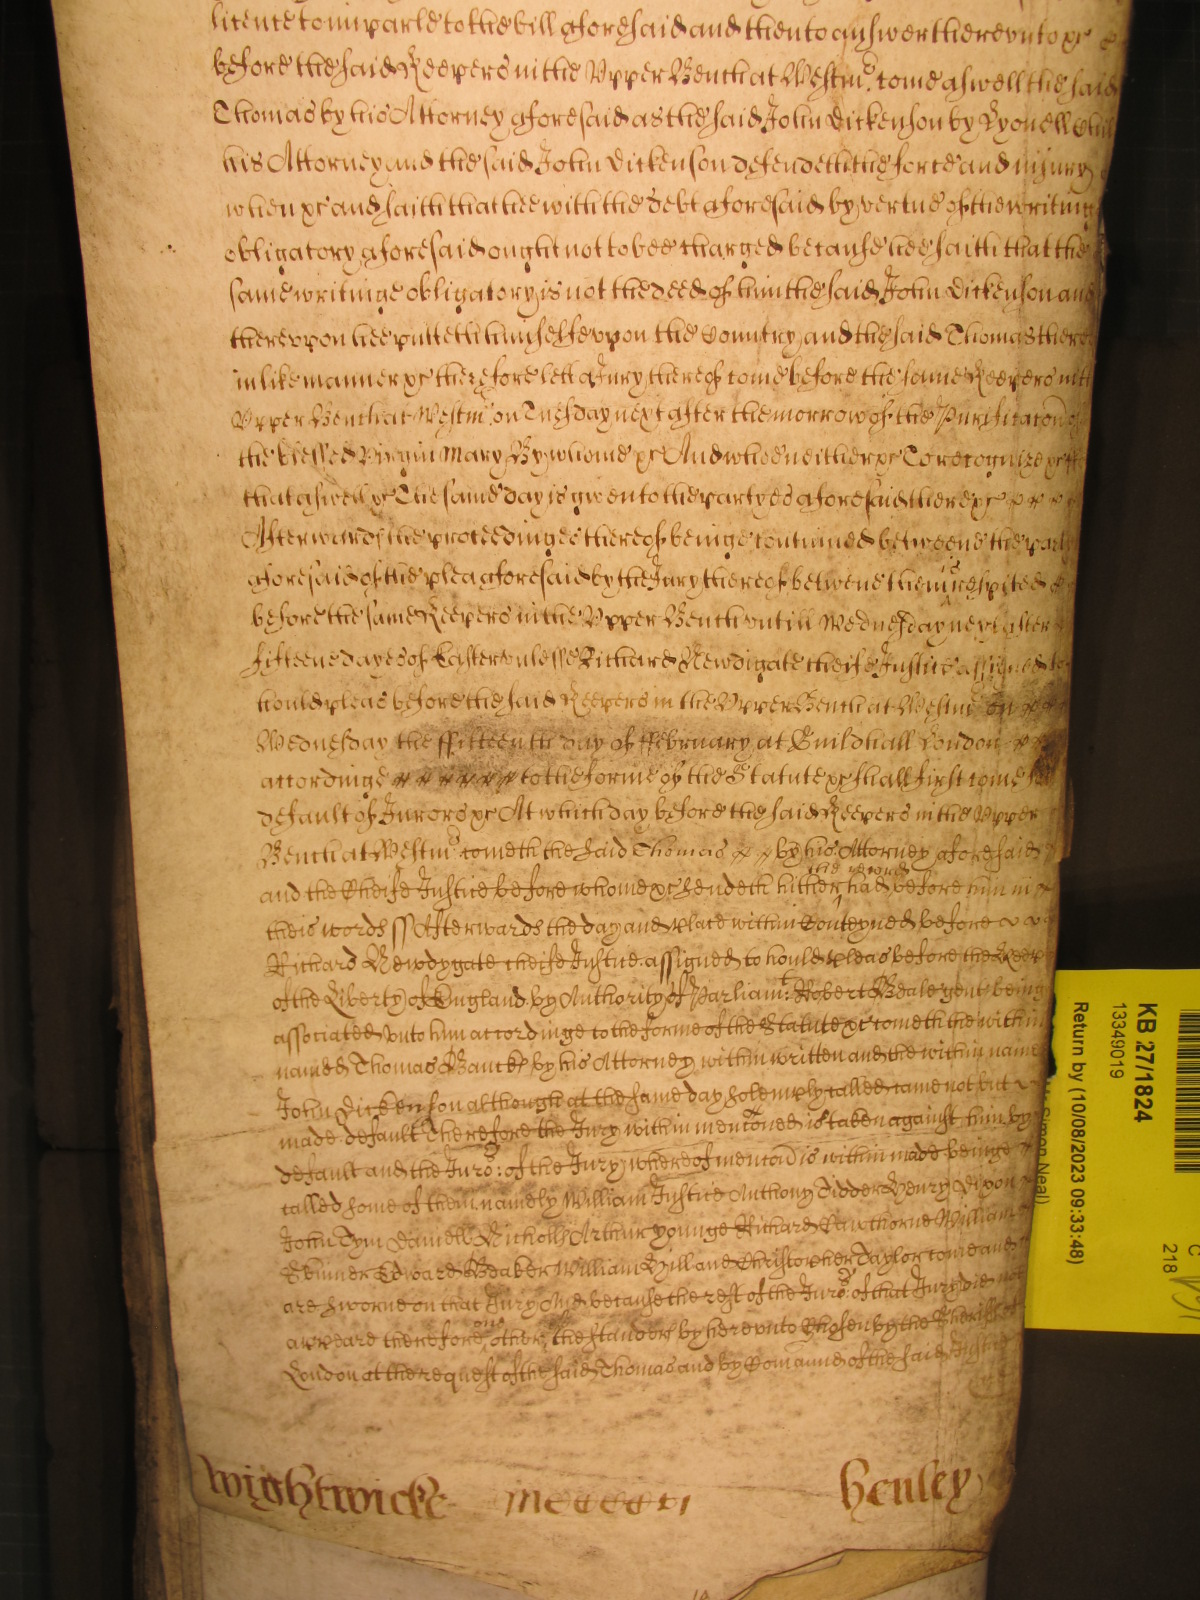 licence to imparle to the bill aforesaid and then to answer therevnto &c
before the said Keepers in the Vpper Bench at Westm̃ come aswell the said
Thomas by his Attorney aforesaid as the said John Dickenson by Lyonell
his Attorney and the said John Dickenson defendeth the force and iniury
when &c and saith that hee with the debt aforesaid by vertue of the writing
obligatory aforesaid ought not to bee charged because hee saith that the
same writinge obligatory is not the deed of him the said John Dickenson and
therevpon hee putteth himselfe vpon the Country and the said Thomas there
in like manner &c therefore lett a Jury thereof come before the same Keepers in the
Vpper Bench at Westm̃ on Tuesday next after the morrow of the Purificac̃on of
the blessed Virgin Mary By whome &c And whoe neither &c To recognize &c
that aswell &c The same day is given to the partyes aforesaid there &c
Afterwards the proceedinges thereof beinge continued betweene the
aforesaid of the plea aforesaid by the Jury thereof betwene them is respited
before the same Keepers in the Vpper Bench vntill Wednesday next after
fifteene dayes of Easter vnlesse Richard Newdigate cheife Justice assigned to
hould pleas before the said Keepers in the Vpper Bench at Westm̃ on
Wednesday the ffifteenth day of ffebruary at Guildhall London
accordinge to the forme of the Statute &c shall first come
default of Jurors &c At which day before the said Keepers in the Vpper
Bench at Westm̃ cometh the said Thomas by his Attorney aforesaid
and the Cheife Justice before whome &c sendeth hither the record had before him in
theis words ss Afterwards the day and place within conteyned before
Richard Newdygate cheife Justice assigned to hould pleas before the Keep
of the Liberty of England by Authority of Parliamt. Robert Beale gent being
associated vnto him accordinge to the forme of the Statute &c cometh the within
named Thomas Banckes by his Attorney within written and the within name
John Dickenson although at the same day solemnly called came not but
made default Therefore the Jury within menc̃oned is taken against him by
default and the Juro:rs of the Jury whereof menc̃on is within made beinge
called some of them namely William Justice Anthony Tidder Henry Dixon
John Tym Daniell Nicholls Arthur younge Richard Cawthorne William
Skinner Edward Beaker William Hill and Christopher Taylor come and
are sworne on that Jury And because the rest of the Juro:rs of that Jury did not
appeare therefore other of the standers by herevnto Chosen by the Sheriffes of
London at the request of the said Thomas and by Com̃aund of the said Justice
Wightwicke mccccc Henley
KB 27/1824
13349019
Return by (10/08/2023 09:33:48)
Simon Neal)
218